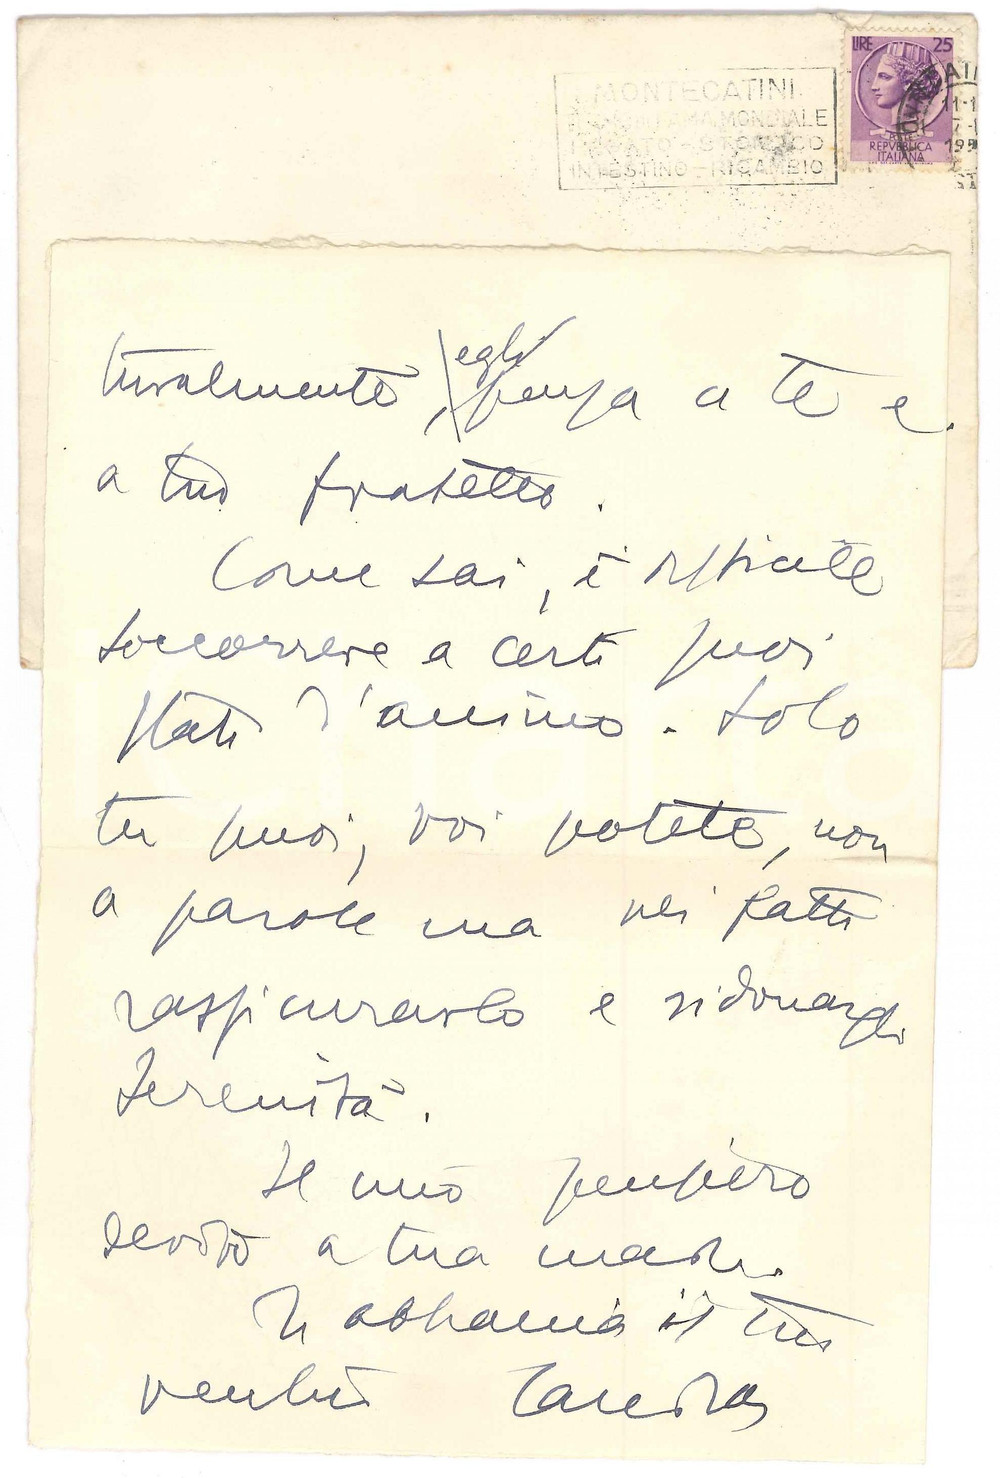 LIRE 25
REPVBBLICA
ITALIANA
MONTECATINI
MONDIALE
FEGATO - STOMACO
INTESTINO - RICAMBIO
turalmente, egli pensa a te e
a tuo fratello.
Come sai, è difficile
soccorrere a certi suoi
stati d'animo. Solo
tu puoi, voi potete, non
a parole ma nei fatti
rassicurarlo e ridonargli
serenità.
Il mio pensiero
devoto a tua madre.
Ti abbraccia il tuo